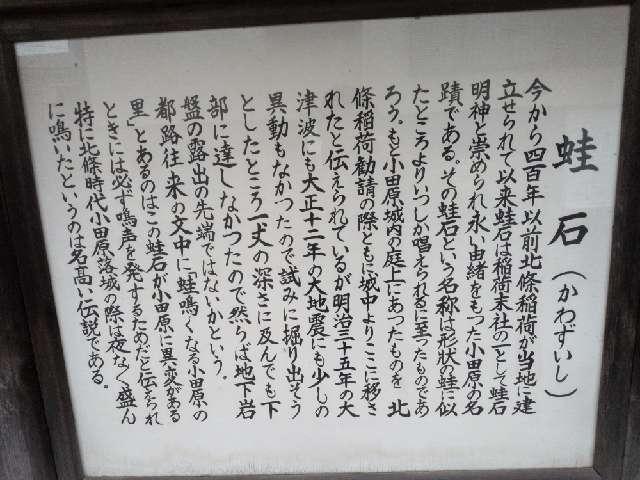 蛙石(かわずいし)
今から四百年以前北條稲荷が当地に建
立せられて以来蛙石は稲荷末社の一として蛙石
明神と崇められ永い由緒をもつた小田原の名
蹟である。その蛙石という名称は形状の蛙に似
たところよりいつしか唱えられるに至つたものであ
ろう。もと小田原城内の庭上にあつたものを北
條稲荷勧請の際ともに城中よりここに移さ
れたと伝えられているが明治三十五年の大
津波にも大正十二年の大地震にも少しの
異動もなかつたので試みに掘り出そう
としたところ一丈の深さに及んでも下
部に達しなかつたので然らば地下岩
盤の露出の先端ではないかという。
都路往来の文中に「蛙鳴くなる小田原の
里」とあるのはこの蛙石が小田原に異変がある
ときには必ず鳴声を発するためだと伝えられ
特に北條時代小田原落城の際は夜なく盛ん
に鳴いたというのは名高い伝説である。